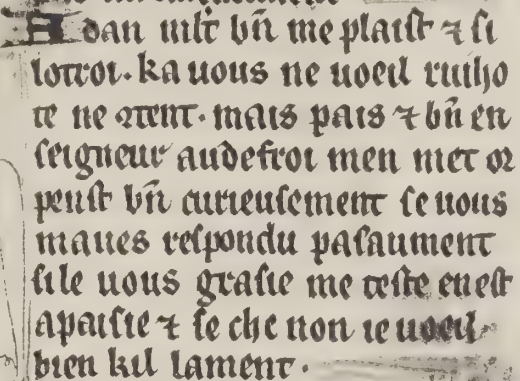 Adan mlt bñ me plaist ⁊ si
lotroi. ka uous ne uoeil ruiho
te ne ꝯtent. mais pais ⁊ bñ en
seigneur audefroi men met or
penst bñ curieusement se uous
maues respondu pasaument
sile uous grasie me teste en est
apaisie ⁊ se che non ie uoeil
bien kil lament.